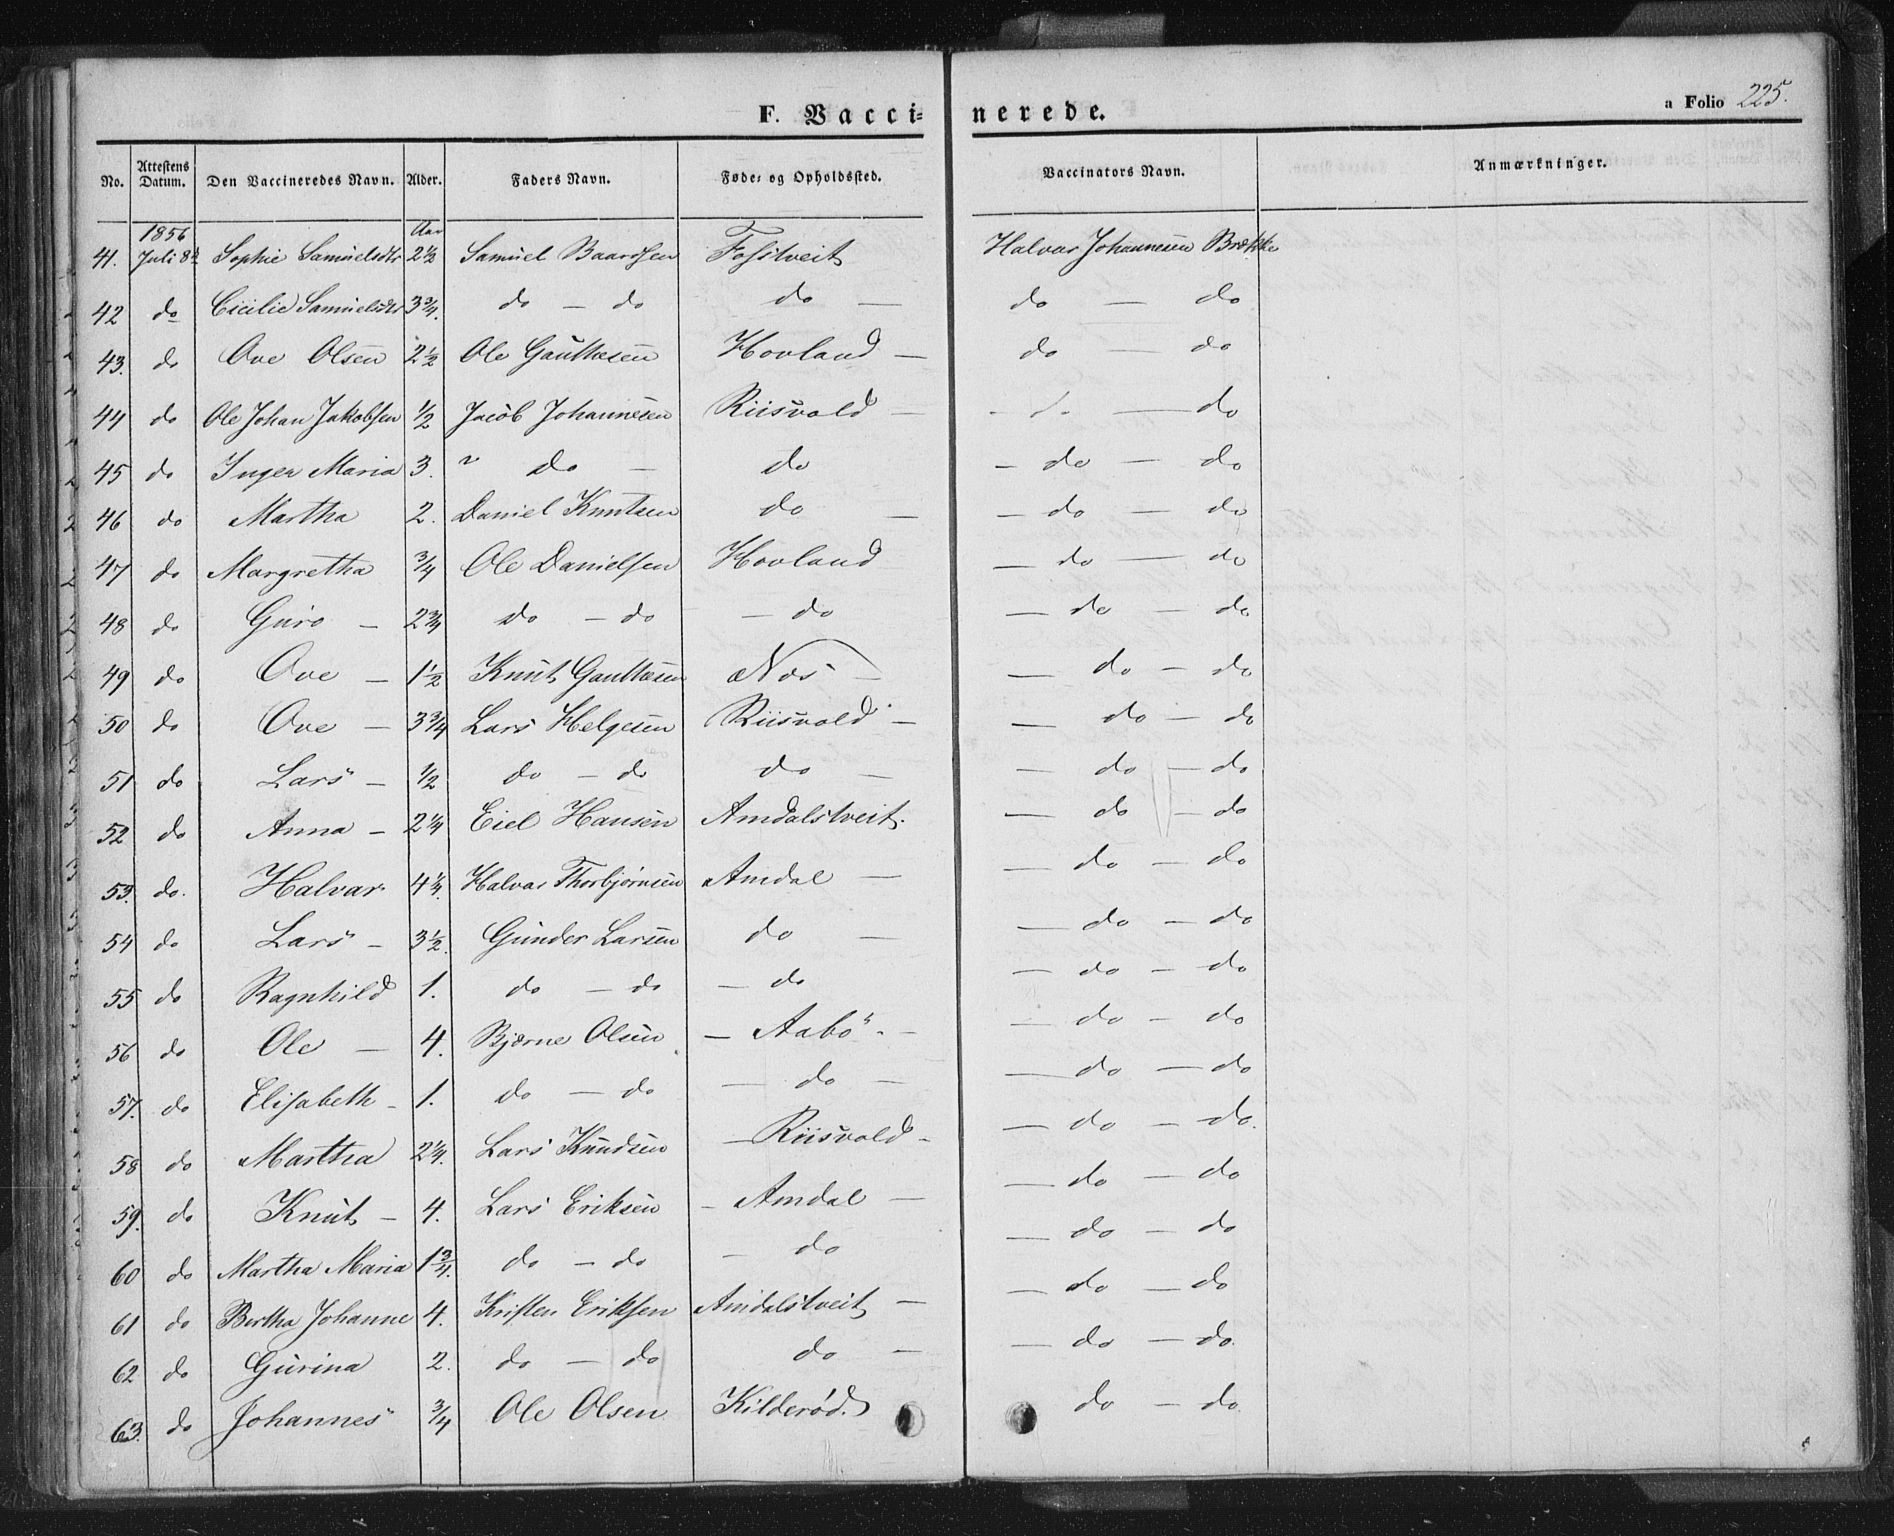 F. Vacci-
nerede.
a Folio 225.
No. Attestens Datum. Den Vaccineredes Navn. Alder. Faders Navn. Føde- og Opholdssted. Vaccinators Navn. Anmærkninger.
1856 Aar
41. Juli 8 Sophie Samuelsdtr 2½ Samuel Baardsen Fositveit Halvar Johannesen Brække
42 do Cicilie Samuelsdtr 3¾. do — do do — do — do
43. do Ove Olsen 2½ Ole Gauttesen Hovland — do — do
44 do Ole Johan Jakobsen ½ Jacob Johannesen Riisvold — - do — do
45 do Inger Maria 3. " do — do — do — do
46 do Martha 2. Daniel Knutsen do — — do — do
47 do Margretha ¾ Ole Danielsen Hovland — do — do
48 do Guro — 2¾ do — do — do — do — do
49 do Ove — 1½ Knut Gauttesen Næs — — do — do
50 do Ove — 3¾ Lars Helgesen Riisvold — — do — do
51 do Lars — ½ do — do do — — do — do
52 do Anna — 2¼ Eiel Hansen Amdalstveit. — do — do
53. do. Halvar 4¼. Halvar Thorbjørnsen Amdal — — do — do
54 do Lars — 3½. Gunder Larsen do — — do — do
55 do Ragnhild 1. do — do — do — do — do
56 do Ole — 4. Bjørne Olsen — Aabø — — do — do
57. do Elisabeth — 1. do — do — do — — do — do
58 do Martha 2¼. Lars Knudsen — Riisvold — — do — do.
59. do Knut — 4. Lars Eriksen — Amdal — — do — do
60 do Martha Maria 1¾. do — do — do — do — do
61 do Bertha Johanne 4. Kristen Eriksen Amdalstveit — — do — do
62 do Gurina 2. do — do do — — do — do.
63. do Johannes ¾ Ole Olsen Kilderød. do — do